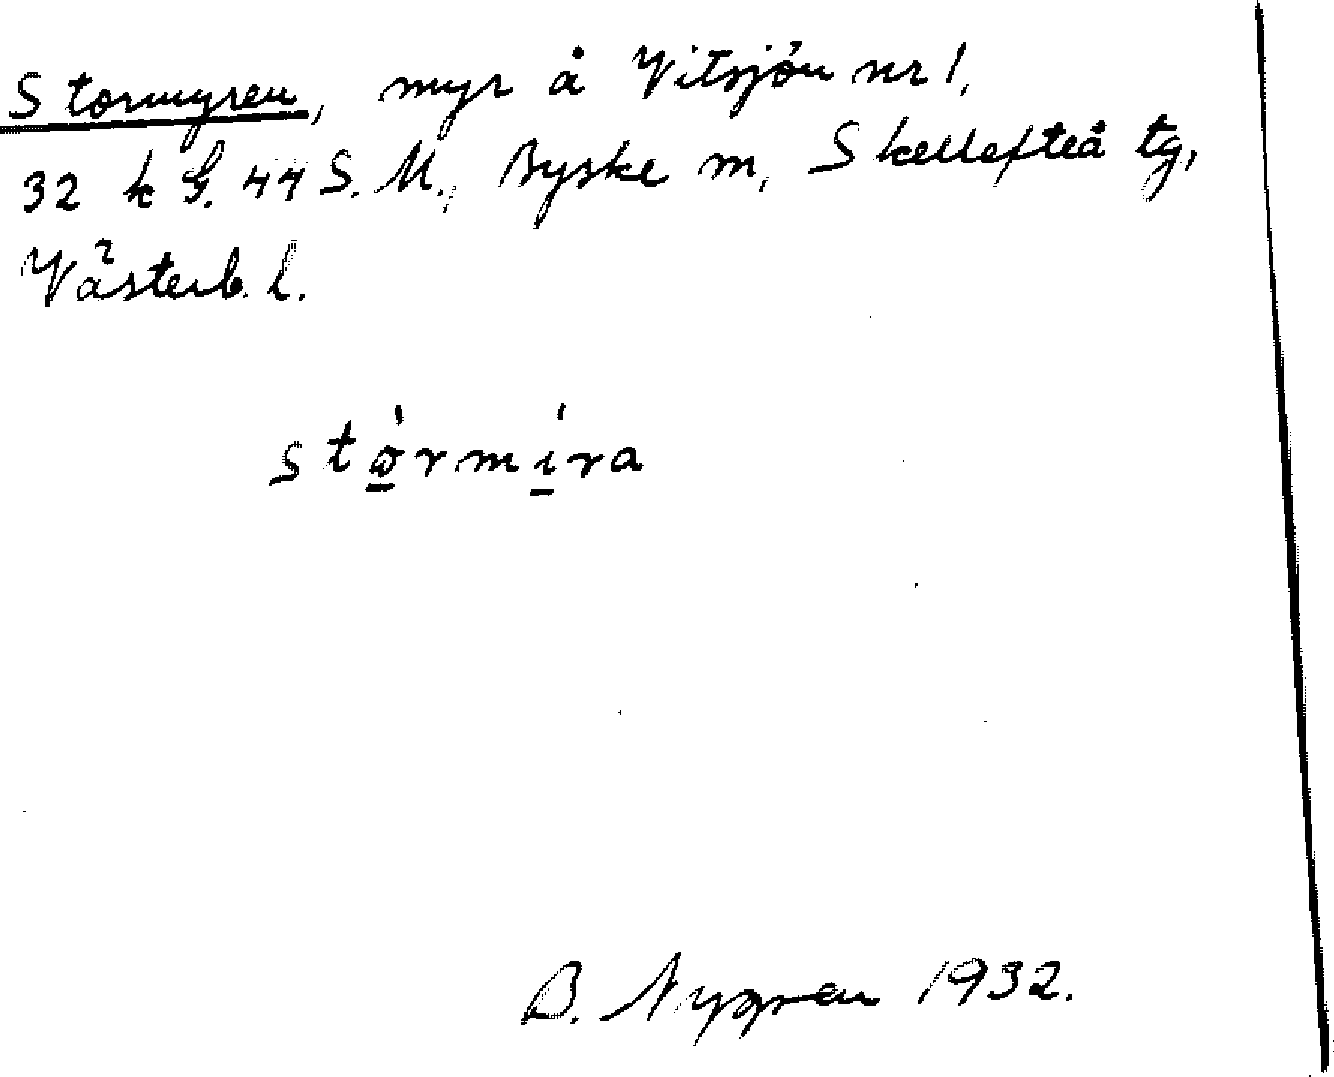 Stormyren, myr å Vitsjön nr 1,
32 k G. 44 S. M., Byske m, Skellefteå tg,
Västerb. l.
stọ̀rmịra
B. Nygren 1932.